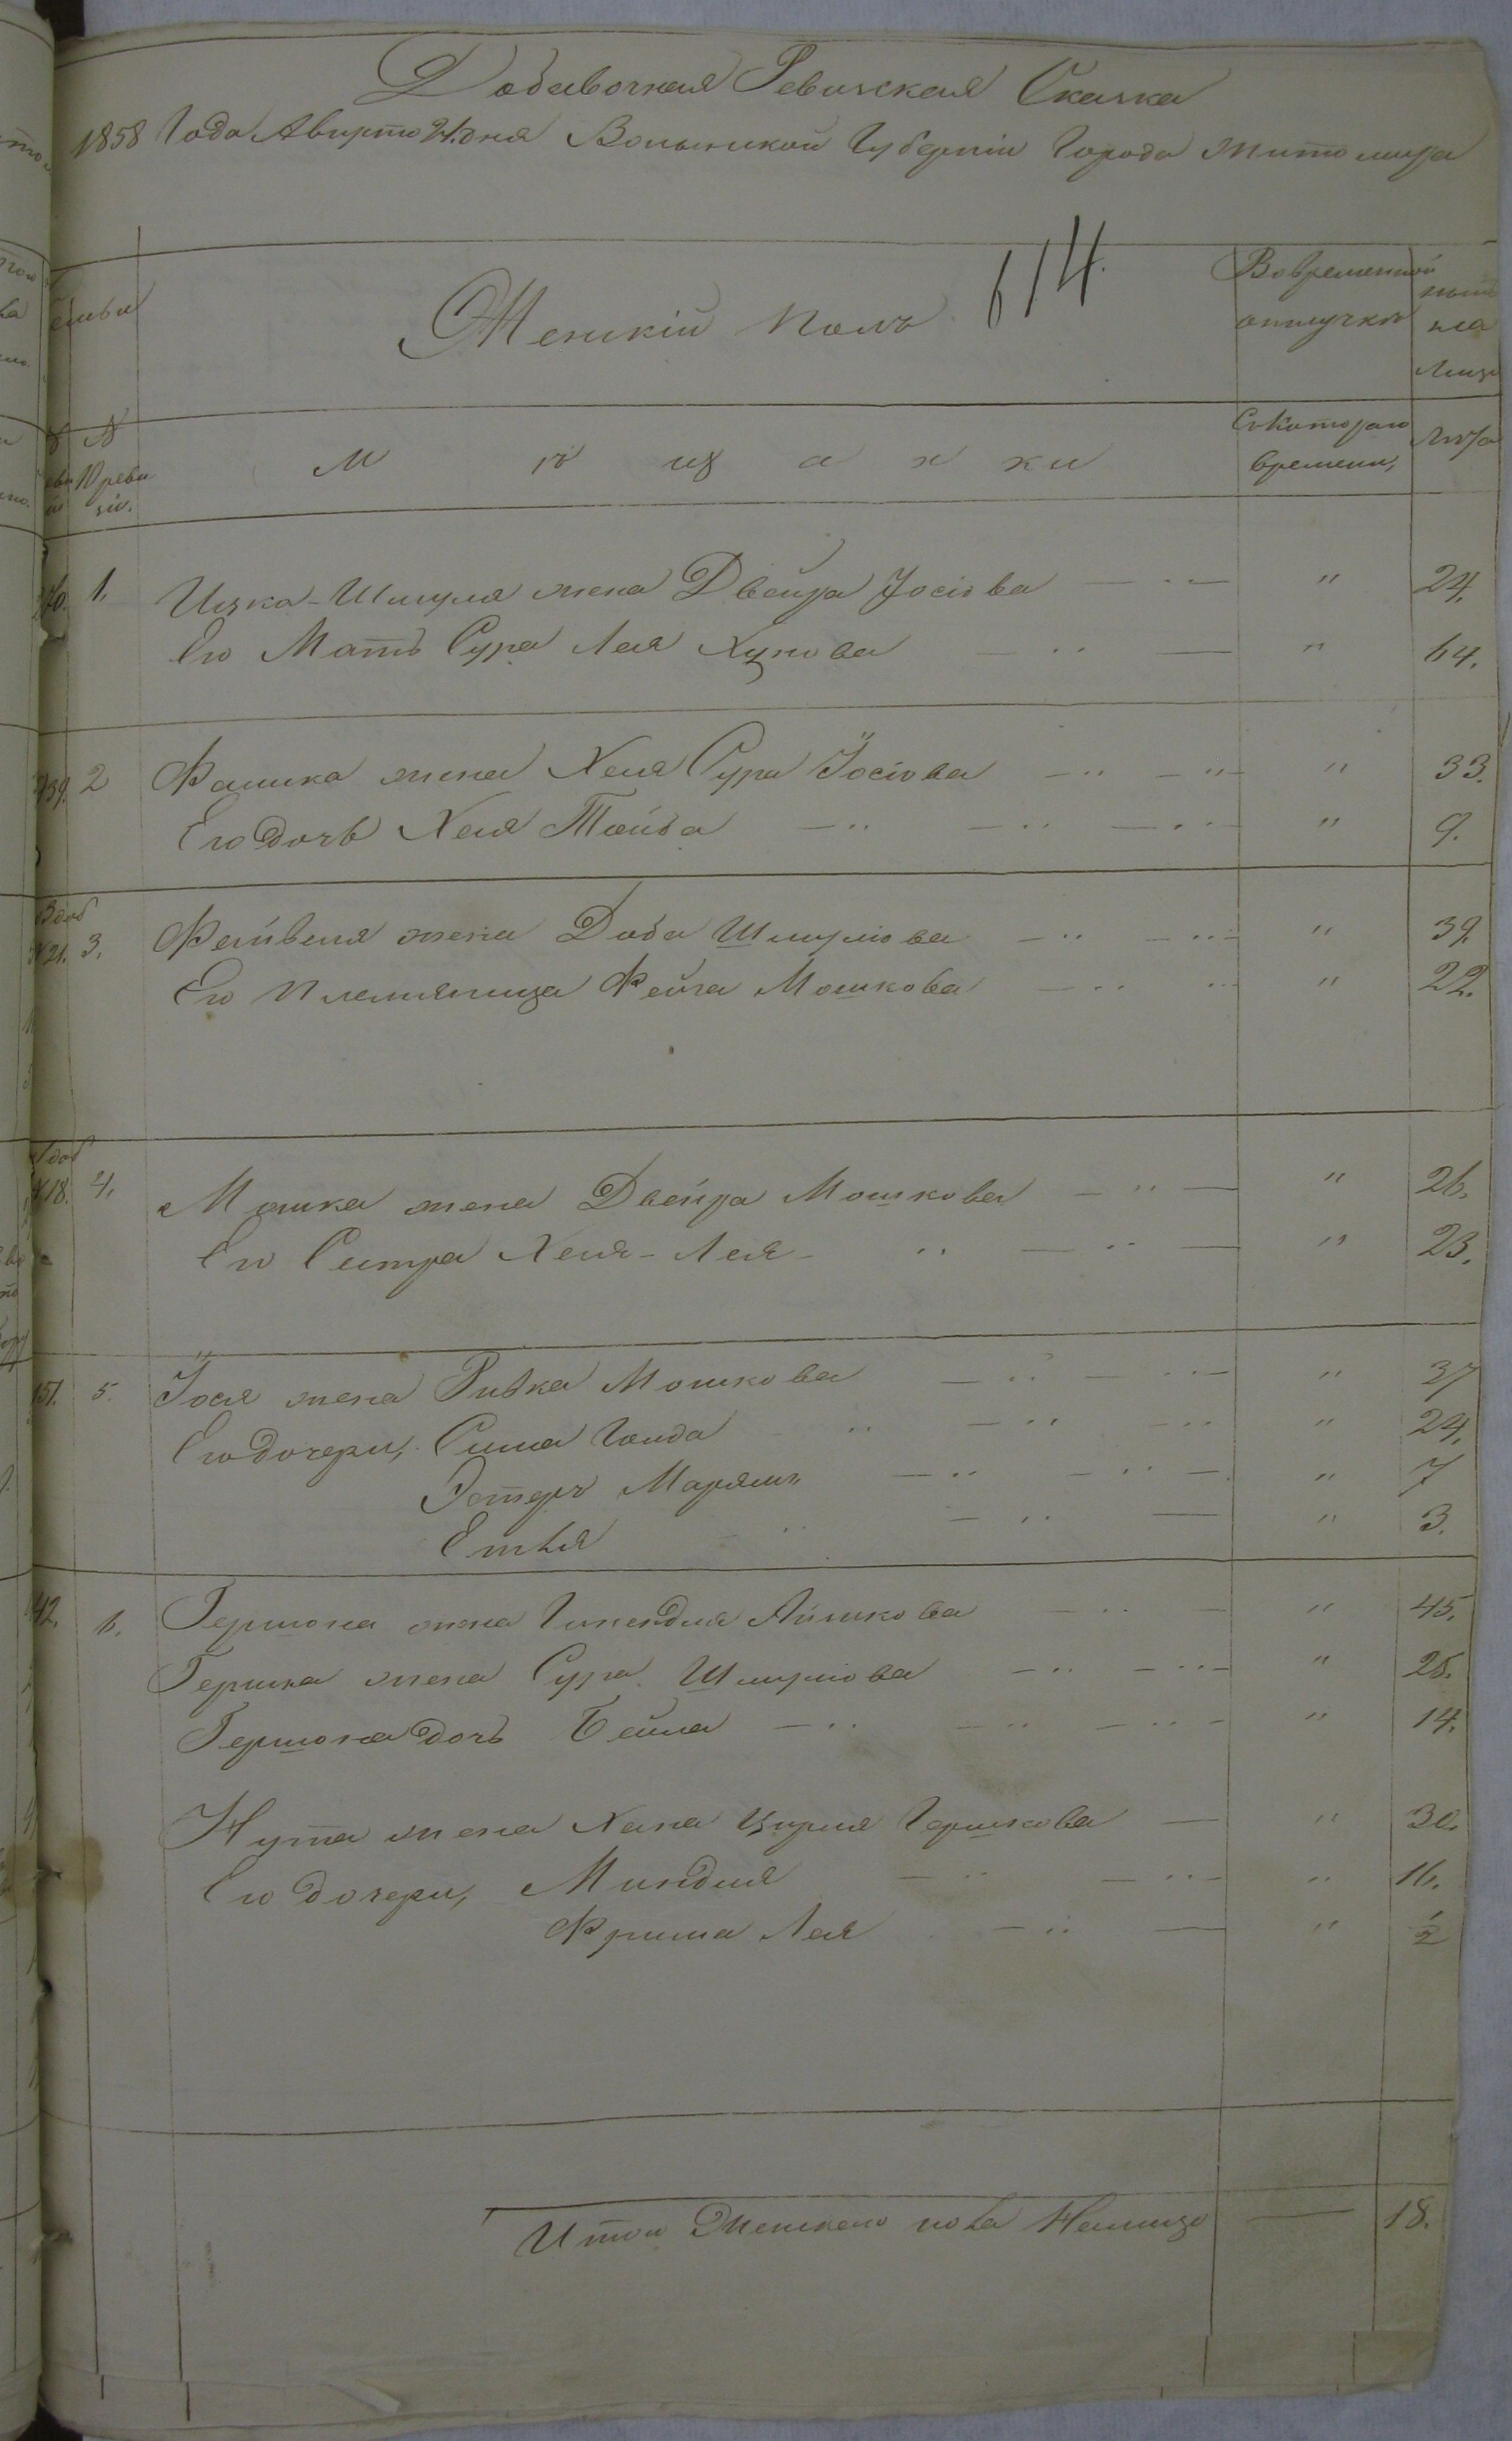 Добавочная Ревизская Сказка
1858 Года Августа 21. дня Волынской Губерніи Города Житомира
614.
Женскій полъ
Вовременной отлучкѣ
ныне на лицо
семьи
№ №
Мѣщанки
Съ котораго времени,
Лѣта
1. Ицка-Шмуля жена Двейра Іосіова — " — " 24.
Его Мать Сура Лея — " — " 64.
739. 2 жена Хая Сура Іосіова — " — " — " 33.
Его дочь Хая Тойба — " — " — " — " 9.
3 доб
№ 21. 3. Файвеля жена Доба Шмулiова — " — " — " 39.
Его Племянница Фейга Мошкова — " " " 22.
доб
№ 18. 4. Мошка жена Двейра Мошкова — " — " 26.
Его Сестра Хая-Лея - " — " — " 23.
151. 5. Іося жена Ривка Мошкова — " — " — " 37
Его дочери, Сима Голда " — " — " " 24.
Эстеръ Марямъ — " — " — " 7
Етля " — " — " 3.
42. 6. Гершона жена Айзикова — " — " 45.
Гершка жена Сура Шмулiова — " — " — " 28.
Гершона дочь Бейла — " — " — " — " 14.
Нута жена Хана Цирля Гершкова — " 30.
Его дочери, Миндля — " — " — " 11.
Фрима Лея — " — " ½
Итого Женскаго пола Налицо — 18.